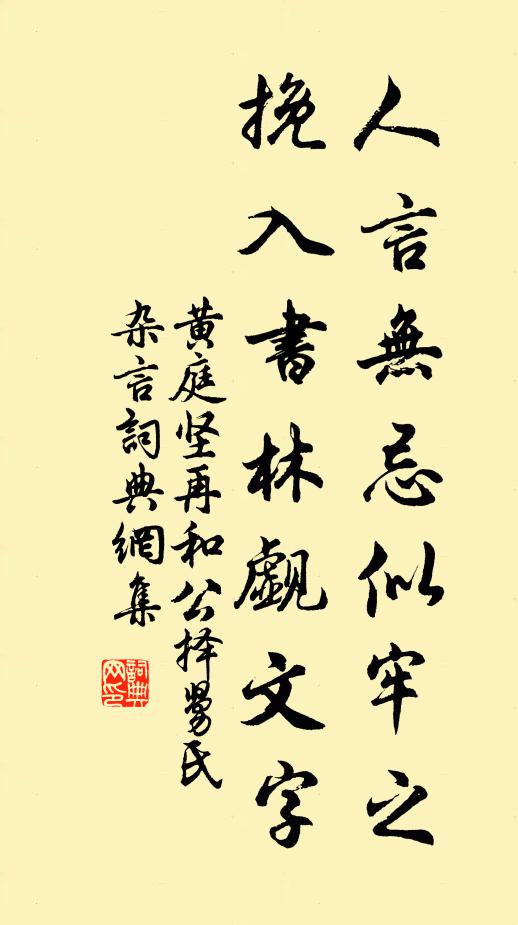 人言無忌似牢之
挽入書林覷文字
黄庭坚再和公择舅氏
杂言詞典網集
詞典网印